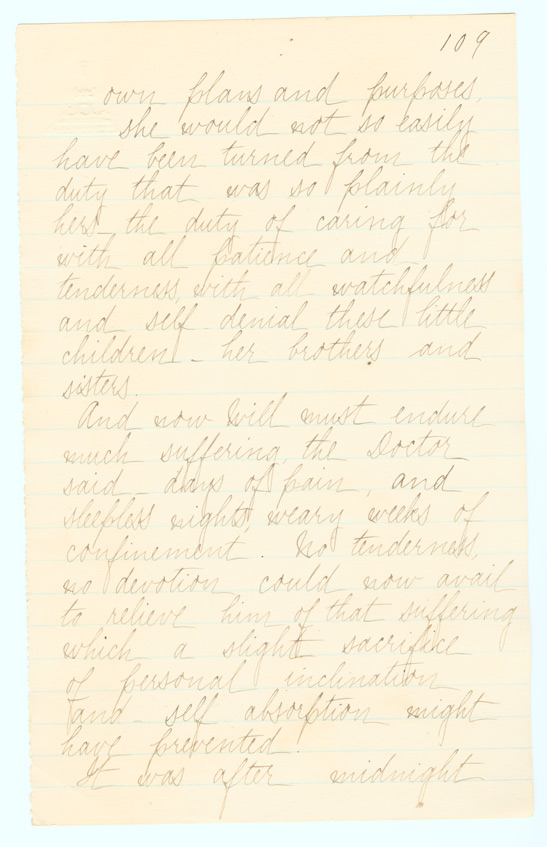 109
own plans and purposes,
she would not so easily
have been turned from the
duty that was so plainly
hers_ the duty of caring for
with all patience and
tenderness, with all watchfulness
and self denial these little
children _ her brothers and
sisters.
And now Will must endure
much suffering, the Doctor
said _ days of pain, and
sleepless nights, weary weeks of
confinement. No tenderness,
no devotion could now avail
to relieve him of that suffering
which a slight sacrifice
of personal inclination
and _ self absorption might
have prevented.
It was after midnight